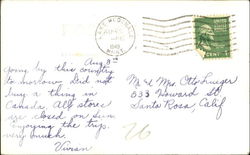 Aug 8
going by this country
to morrow. Did not
buy a thing in
Canada. All stores
are closed on Sun
enjoying the trip.
very much.
Vivian
UNITED
1 CENT 1
Mr & Mrs Otto
533 Howard St
Santa Rosa, Calif